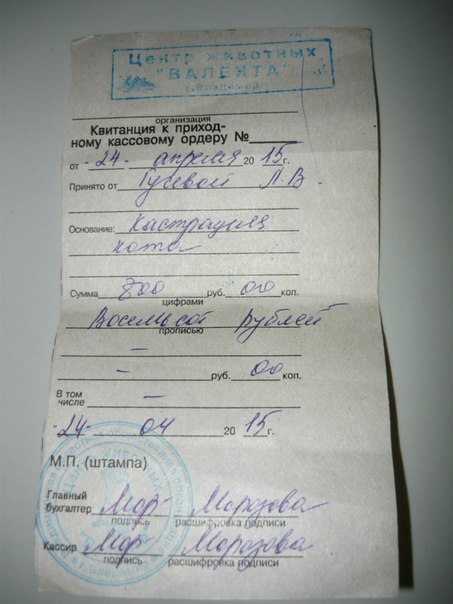 Центр животных
"ВАЛЕНТА"
г. Владимир
организация
Квитанция к приход-
ному кассовому ордеру №
от -24- апреля 2015г.
Принято от Гусевой Л.В
Основание: Кастрация
кота
Сумма 800 руб. 00 коп.
цифрами
Восемьсот рублей
прописью
–
– руб. 00 коп.
В том
числе –
-24- 04 2015г.
М.П. (штампа)
Главный
бухгалтер Мор Морозова
подпись расшифровка подписи
Кассир Мор Морозова
подпись расшифровка подписи